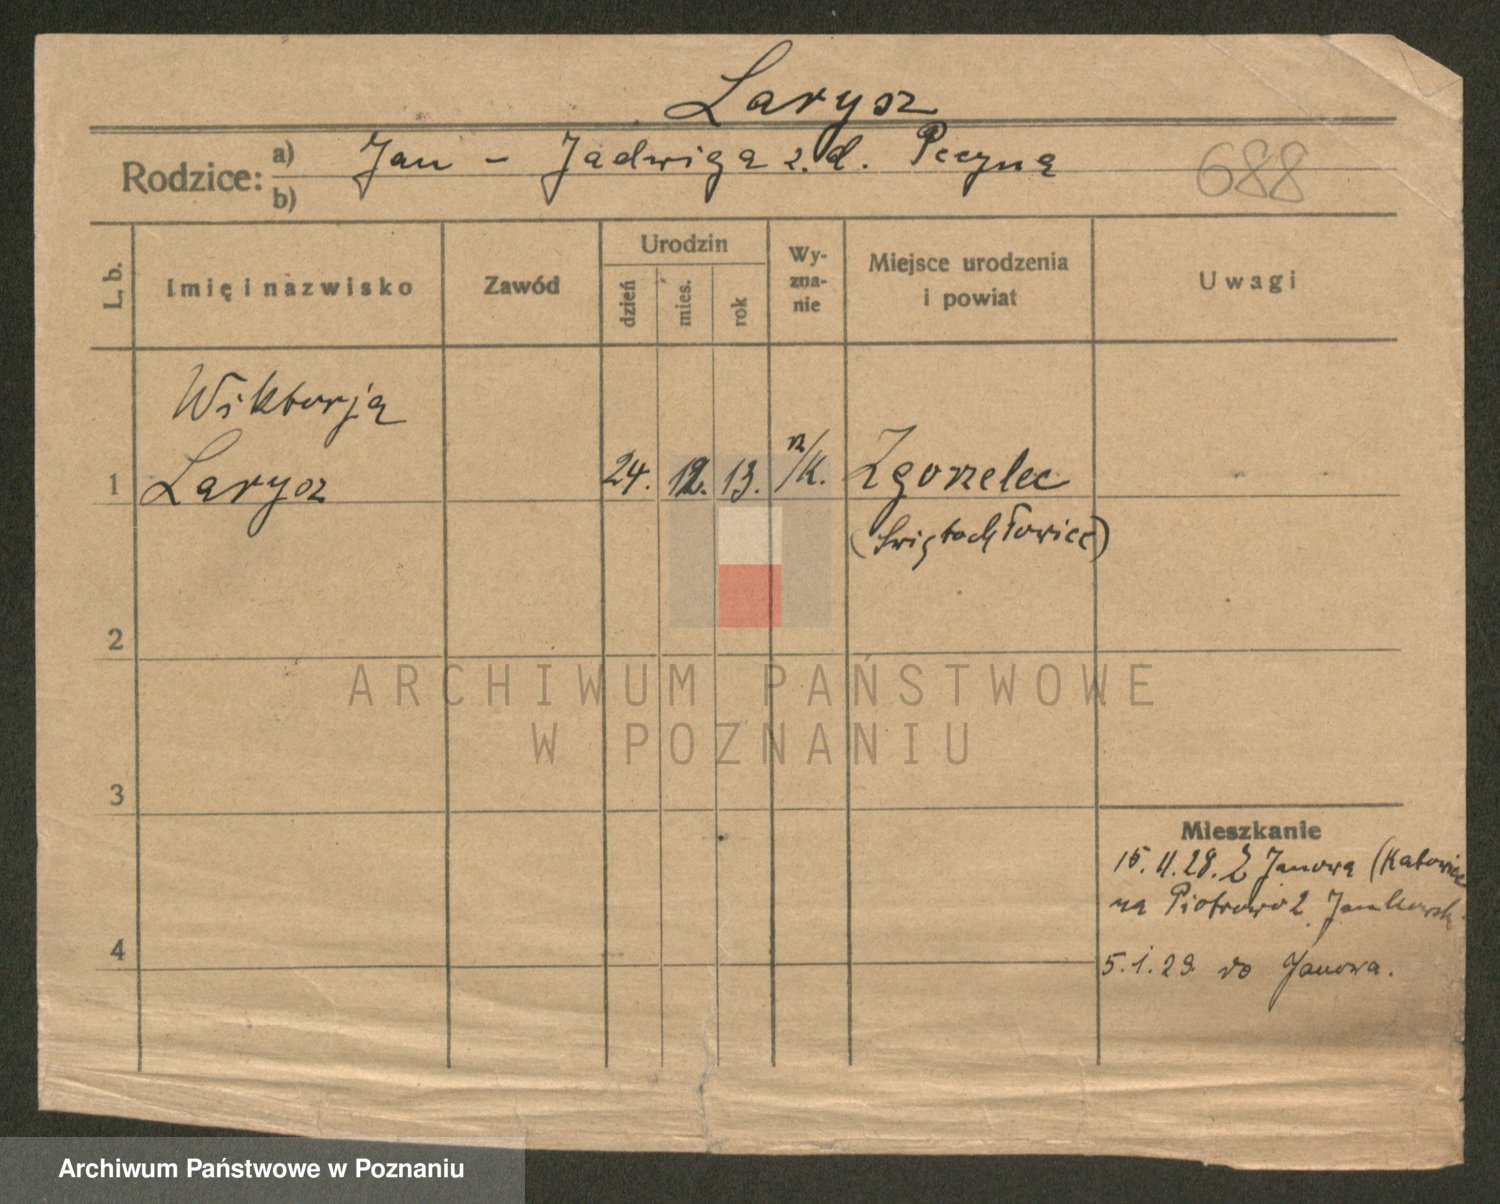 Larysz
Rodzice: a) Jan - Jadwiga z. d. Pecyna
b)
688
L. b.
Imię i nazwisko
Zawód
Urodzin
dzień
mies.
rok
Wy-
zna-
nie
Miejsce urodzenia
i powiat
Uwagi
Wiktorja
1 Larysz 24. 12. 13. n/K. Zgorzelec
(Świętochłowice)
2
3
4
Mieszkanie
15. 11. 28. Z Janowa (Katowice
na Piotrowo 2
5. 1. 29. do Janowa.
ARCHIWUM PAŃSTWOWE
W POZNANIU
Archiwum Państwowe w Poznaniu